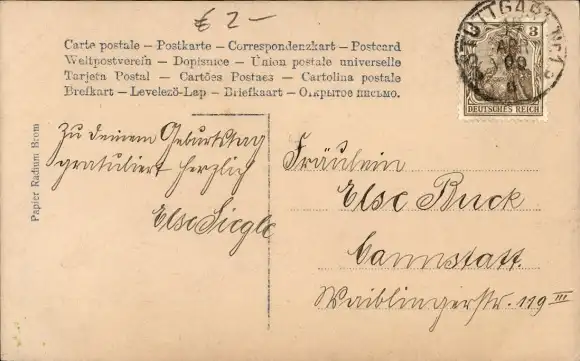 € 2-
Carte postale – Postkarte – Correspondenzkart – Postcard
Weltpostverein – Dopisnice – Union postale universelle
Tarjeta Postal – Cartões Postaes – Cartolina postale
Brefkart – Levelező-Lap – Briefkaart – Открытое письмо.
STUTTGART Nr. 1
APR
3
DEUTSCHES REICH
Papier Radium Brom
Zu deinem Geburtstag
gratuliert herzlich
Else Siegle
Fräulein
Else Buck
Cannstatt.
Waiblingerstr. 119 III